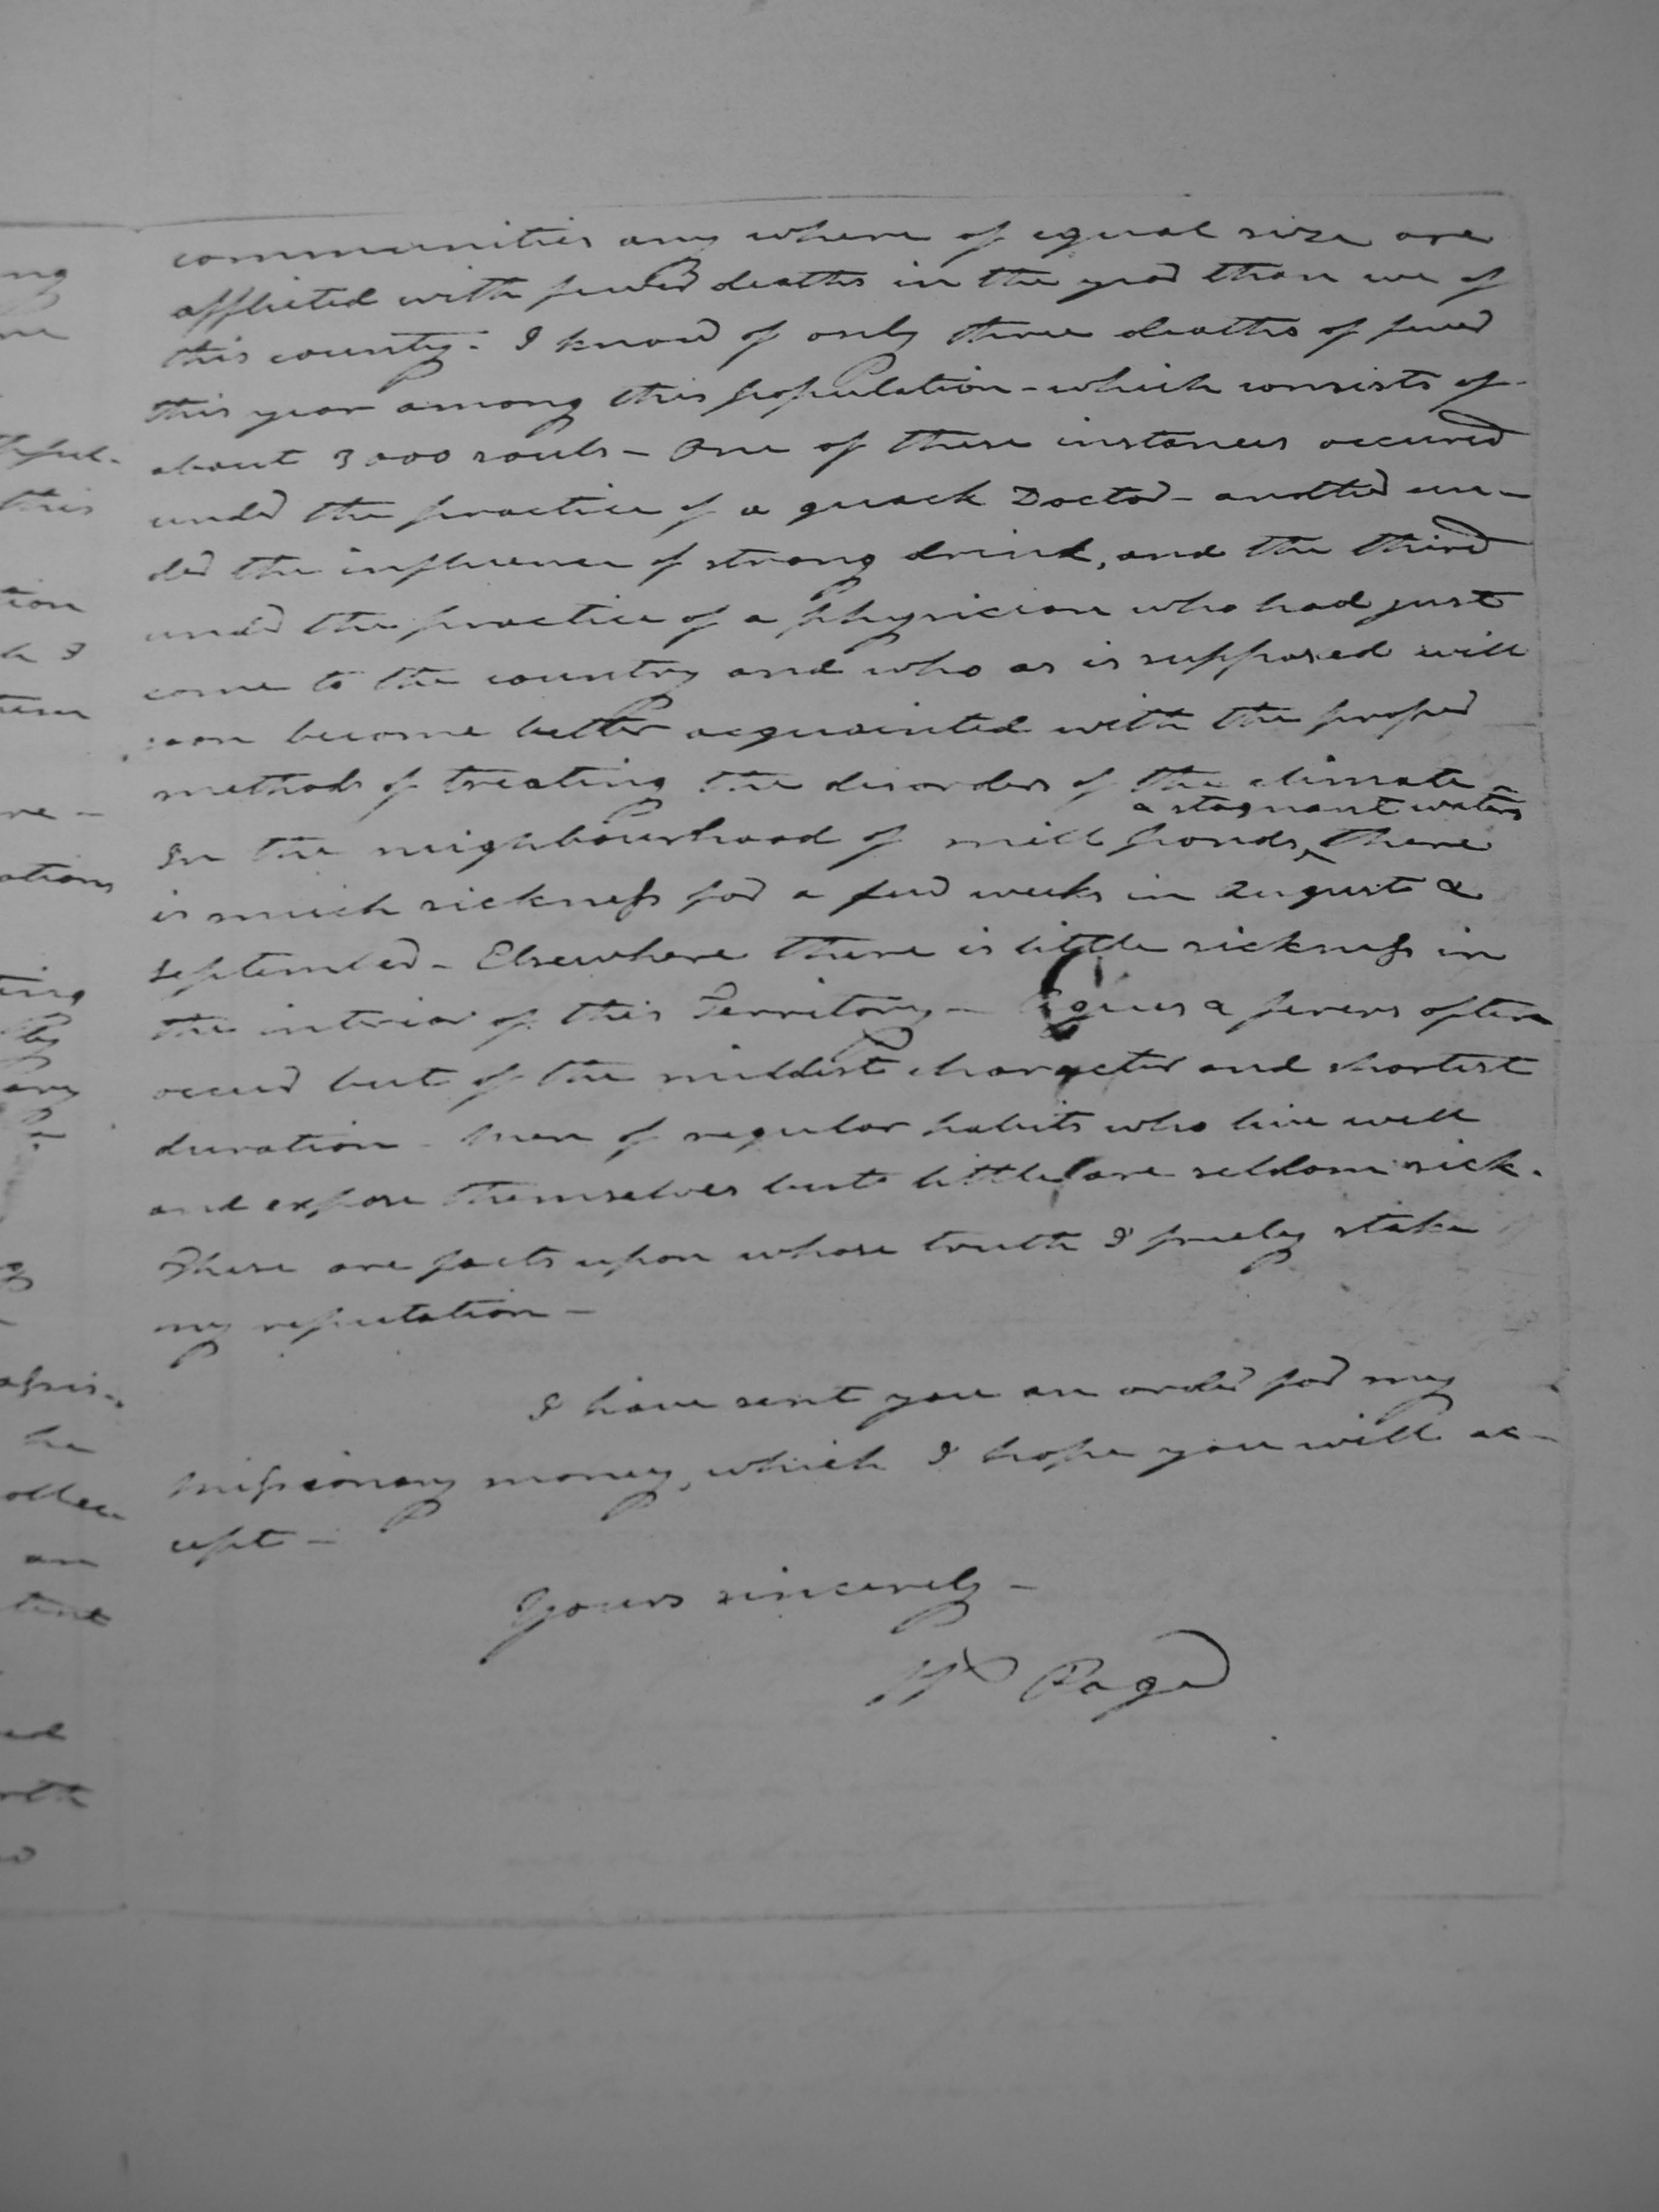 communities any where of equal size are
afflicted with fewer deaths in the year than we of
this county - I know of only three deaths of fever
this year among this population - which consists of
about 3000 souls - One of these instances occured
under the practice of a quack Doctor - another un-
der the influence of strong drink, and the third
under the practice of a physician who had just
come to the country and who as is supposed will
soon become better acquainted with the proper
methods of treating the disorders of the climate -
& stagnant waters
In the neighbourhood of mill ponds ^ there
is much sickness for a few weeks in August &
September - Elsewhere there is little sickness in
the interior of this Territory - Agues & fevers often
occur but of the mildest character and shortest
duration - Men of regular habits who live well
and expose themselves but little are seldom sick.
These are facts upon whose truth I freely stake
my reputation -
I have sent you an order for my
missionary money, which I hope you will ac-
cept -
Yours sincerely -
Wm Page